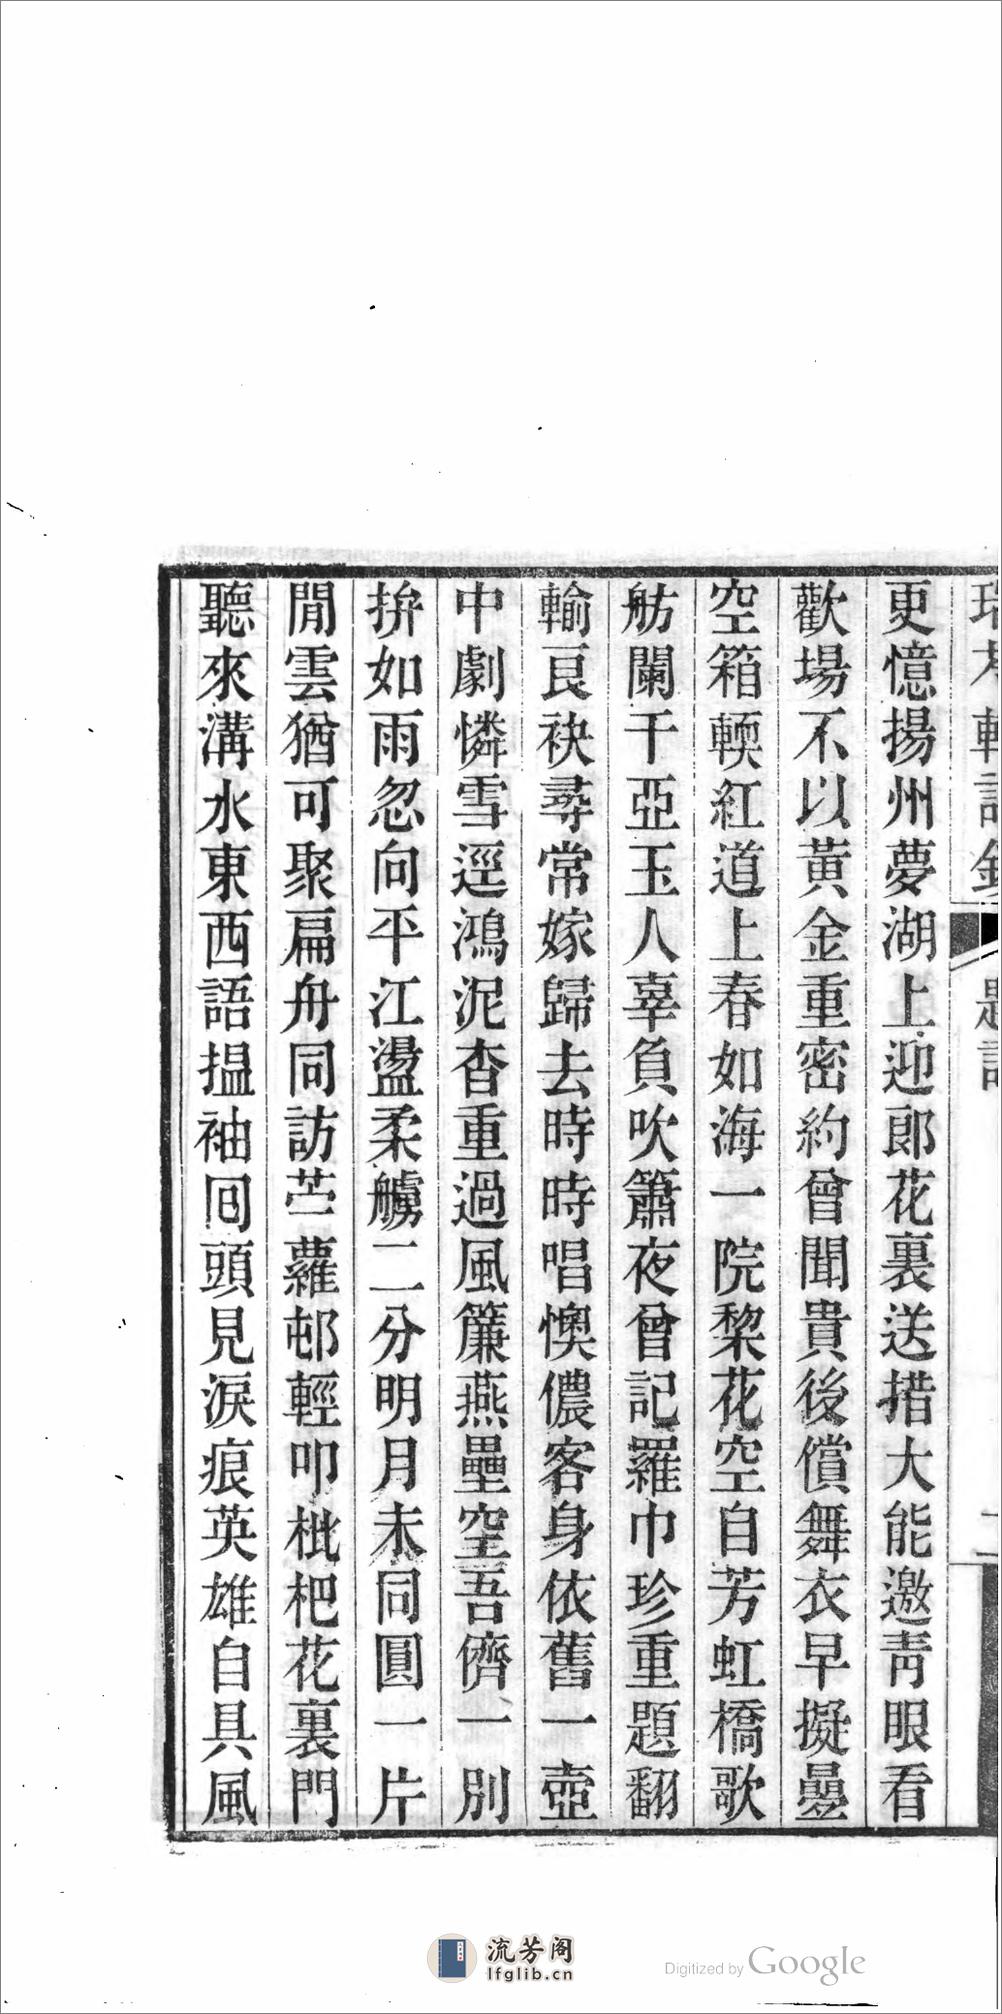 更憶揚州夢湖上迎郎花裏送措大能邀靑眼看
歡場不以黃金重密約曾聞貴後償舞衣早擬疊
空箱輭紅道上春如海一院棃花空自芳虹橋歌
舫闌干亞玉人辜負吹簫夜曾記羅巾珍重題翻
輸良袂尋常嫁歸去時時唱懊儂客身依舊一壺
中劇憐雪逕鴻泥杳重過風簾燕壘空吾儕一別
拚如雨忽向平江盪柔艣二分明月未同圓一片
閒雲猶可聚扁舟同訪苎蘿邨輕叩枇杷花裏門
聽來溝水東西語搵袖囘頭見淚痕英雄自具風
題詞
流芳阁
lfglib.cn
Digitized by Google